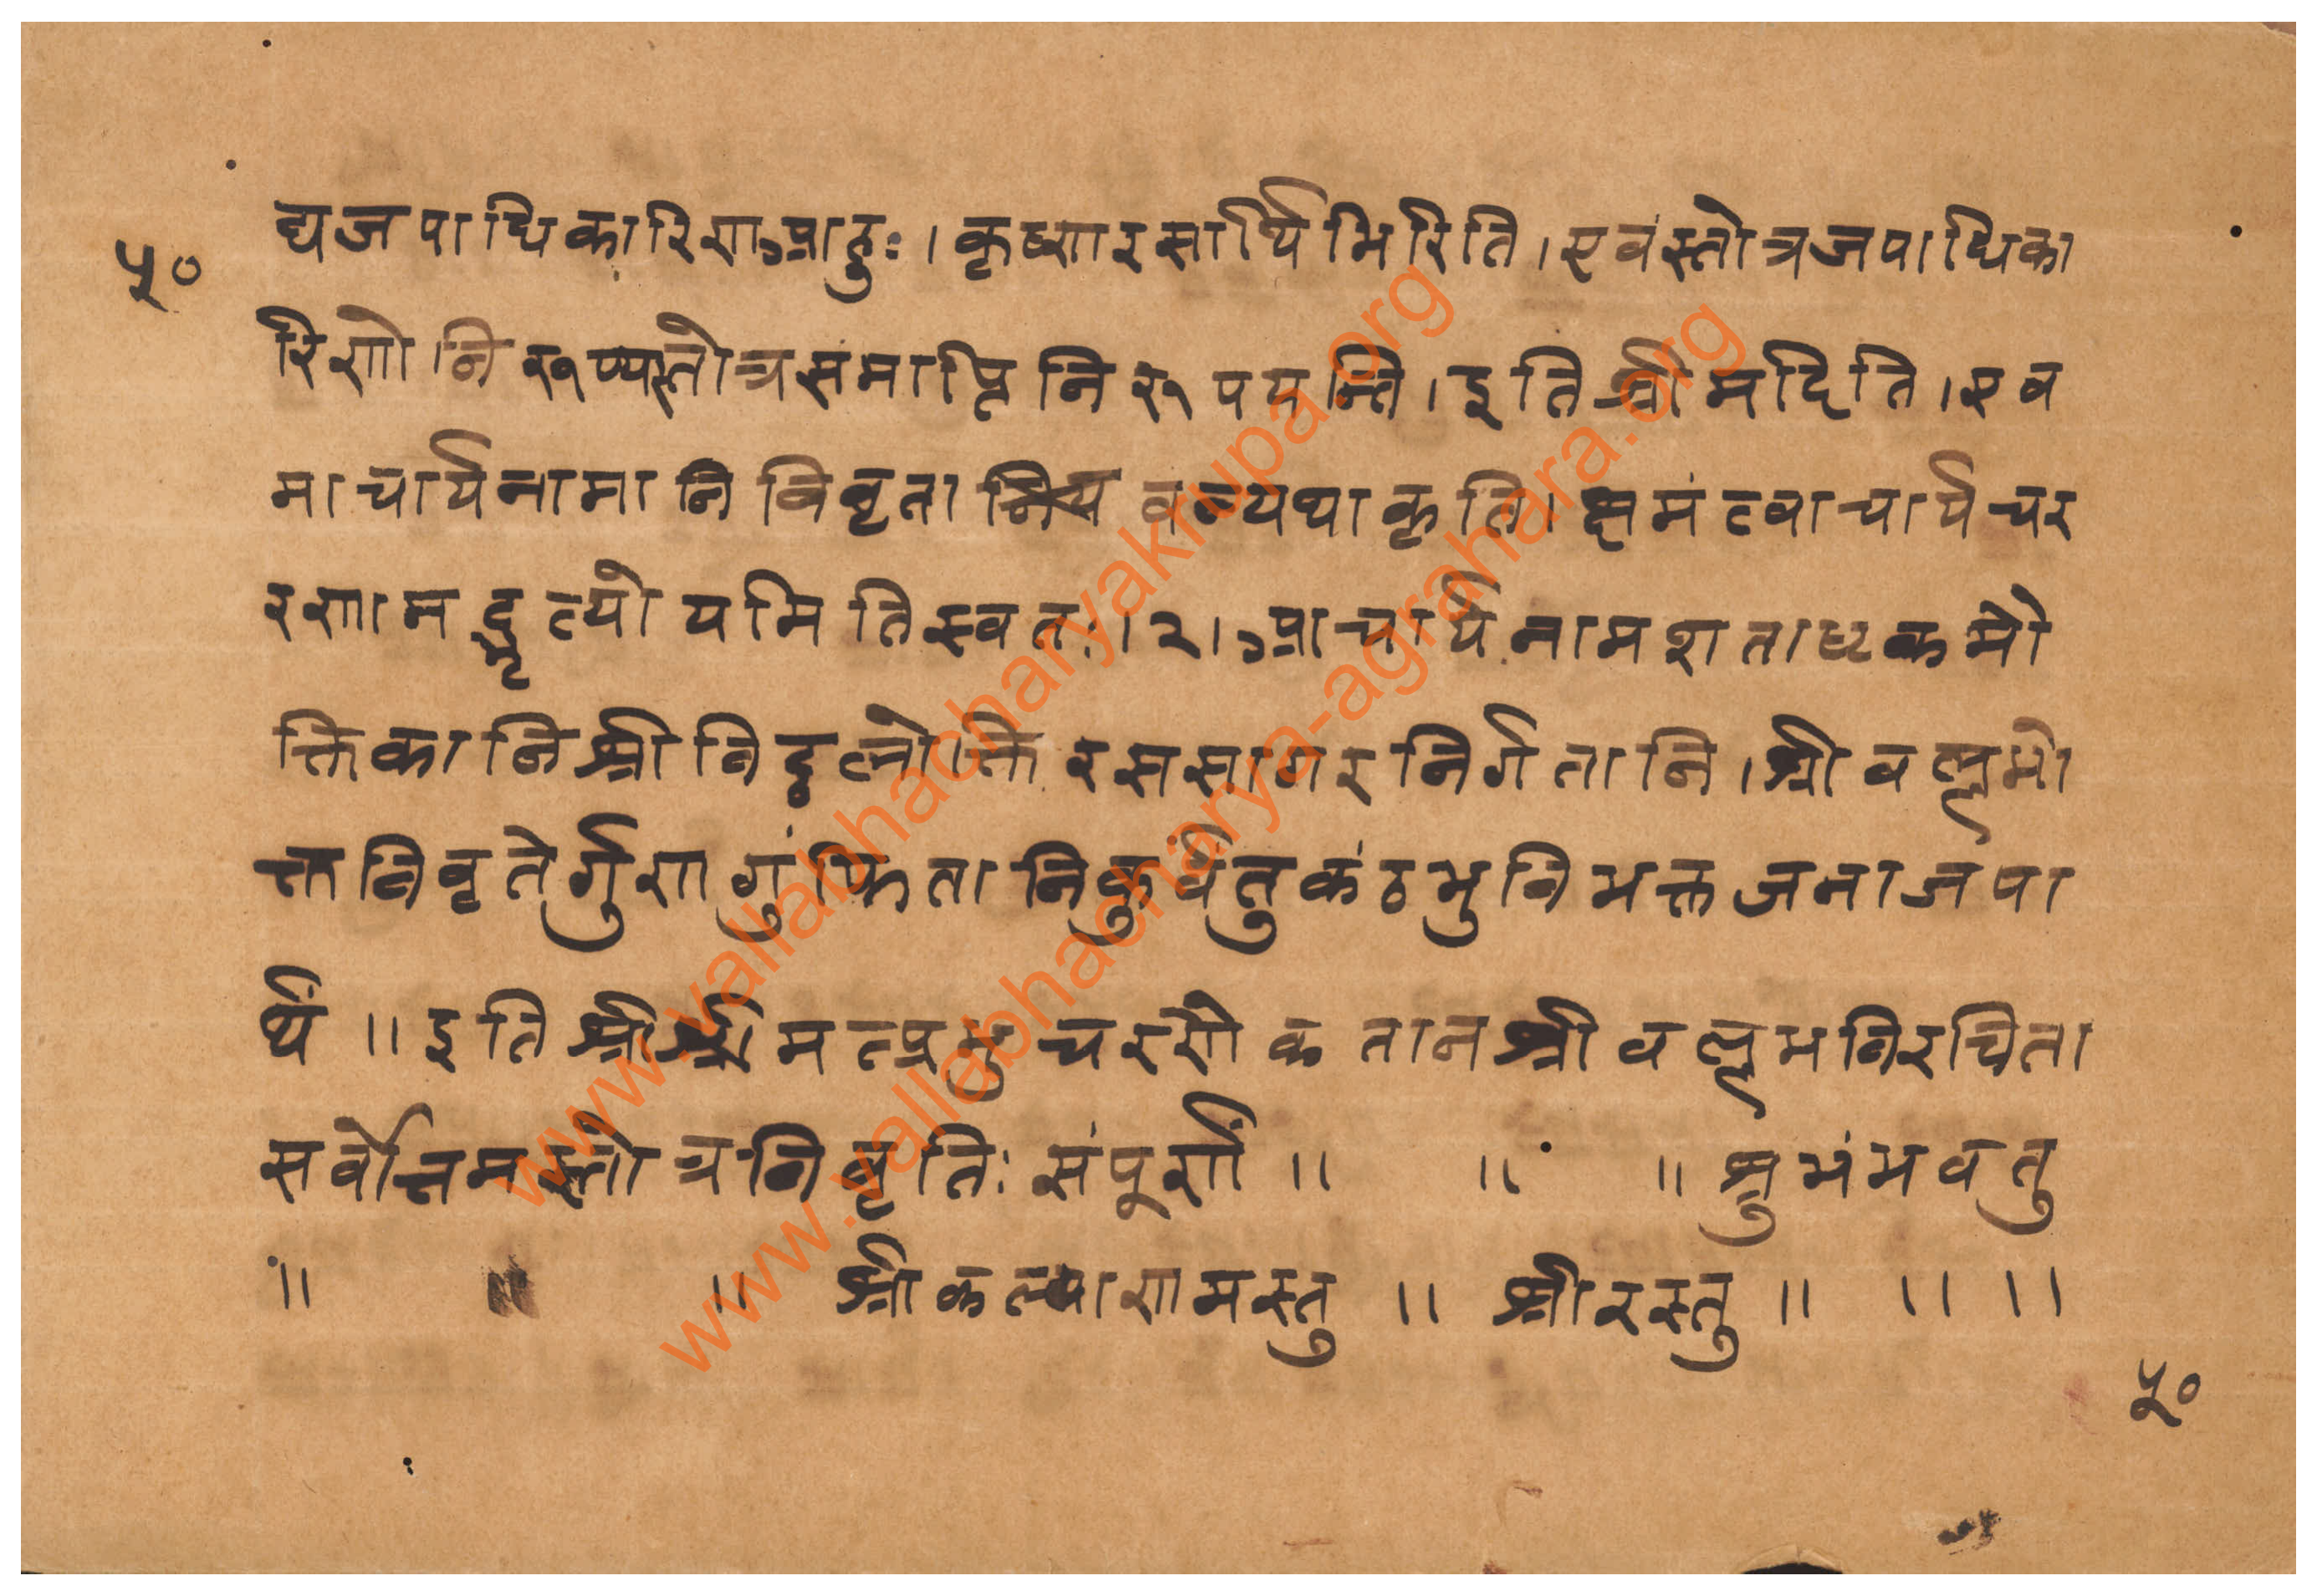 ५०
द्यजपाधिकारिणआहुः । कृष्णरसार्थिभिरिति । एवंस्तोत्रजपाधिका
रिणो निरूप्यस्तोत्रसमाप्तिं निरूपयन्ति । इतिश्रीमदिति । एव
माचार्यनामानि विवृतानि यथाकृति । क्षमंत्वाचार्यचर
रणामद्भृत्योयमितिस्वतः । २ । आचार्यनामशताष्टकमौ
क्तिकानिश्रीविठ्ठलोक्तिरससागरनिर्गतानि । श्रीवल्लभो
क्तविवृतेर्गुणगुंफितानिकुर्वंतुकंठभुविभक्तजनाजपा
र्थं ॥ इतिश्रीश्रीमत्प्रभुचरणैकतानश्रीवल्लभविरचिता
सर्वोत्तमस्तोत्रविवृतिः संपूर्णां ॥ ॥ ॥ शुभंभवतु
॥ ॥ ॥ श्रीकल्याणमस्तु ॥ श्रीरस्तु ॥ ॥ ॥
५०
www.vallabhacharyakrupa.org
www.vallabhacharya-agrahara.org